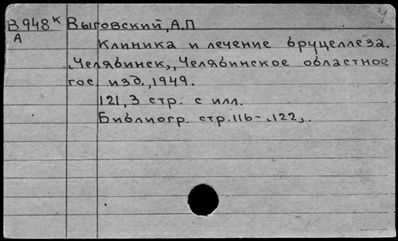 В948к Выговский, А.П
А Клиника и лечение бруцеллеза.
Челябинск, Челябинское областное
гос. изд., 1949.
121,3 стр. с илл.
Библиогр. стр. 116-122.